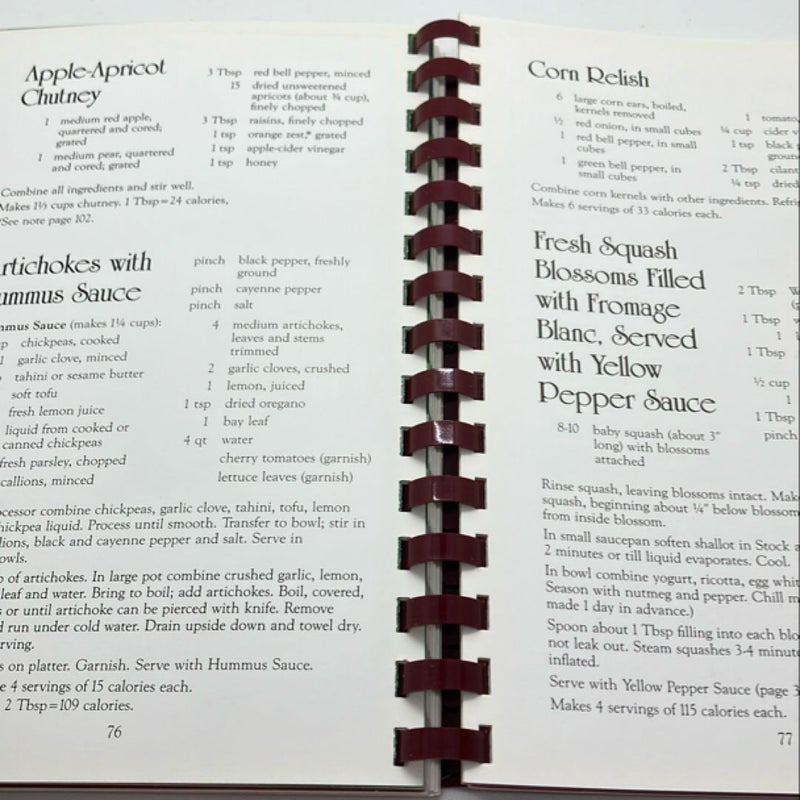 Apple-Apricot
Chutney
1 medium red apple,
quartered and cored;
grated
1 medium pear, quartered
and cored; grated
3 Tbsp red bell pepper, minced
15 dried unsweetened
apricots (about ¾ cup),
finely chopped
3 Tbsp raisins, finely chopped
1 tsp orange zest,* grated
1 tsp apple-cider vinegar
1 tsp honey
Combine all ingredients and stir well.
Makes 1½ cups chutney. 1 Tbsp=24 calories,
*See note page 102.
rtichokes with
ummus Sauce
mmus Sauce (makes 1¼ cups):
p chickpeas, cooked
1 garlic clove, minced
tahini or sesame butter
soft tofu
fresh lemon juice
liquid from cooked or
canned chickpeas
fresh parsley, chopped
callions, minced
pinch black pepper, freshly
ground
pinch cayenne pepper
pinch salt
4 medium artichokes,
leaves and stems
trimmed
2 garlic cloves, crushed
1 lemon, juiced
1 tsp dried oregano
1 bay leaf
4 qt water
cherry tomatoes (garnish)
lettuce leaves (garnish)
ocessor combine chickpeas, garlic clove, tahini, tofu, lemon
hickpea liquid. Process until smooth. Transfer to bowl; stir in
lions, black and cayenne pepper and salt. Serve in
owls.
p of artichokes. In large pot combine crushed garlic, lemon,
leaf and water. Bring to boil; add artichokes. Boil, covered,
s or until artichoke can be pierced with knife. Remove
d run under cold water. Drain upside down and towel dry.
rving.
s on platter. Garnish. Serve with Hummus Sauce.
e 4 servings of 15 calories each.
2 Tbsp=109 calories.
76
Corn Relish
6 large corn ears, boiled,
kernels removed
½ red onion, in small cubes
1 red bell pepper, in small
cubes
1 green bell pepper, in
small cubes
1 tomato,
¼ cup cider v
1 tsp black p
groun
2 Tbsp cilant
¼ tsp dried
Combine corn kernels with other ingredients. Refri
Makes 6 servings of 33 calories each.
Fresh Squash
Blossoms Filled
with Fromage
Blanc, Served
with Yellow
Pepper Sauce
8-10 baby squash (about 3"
long) with blossoms
attached
2 Tbsp W
1 Tbsp
1
1 Tbsp
½ cup
1
1 Tbsp
pinch
Rinse squash, leaving blossoms intact. Mak
squash, beginning about ¼" below blossom
from inside blossom.
In small saucepan soften shallot in Stock a
2 minutes or till liquid evaporates. Cool.
In bowl combine yogurt, ricotta, egg whit
Season with nutmeg and pepper. Chill m
made 1 day in advance.)
Spoon about 1 Tbsp filling into each blo
not leak out. Steam squashes 3-4 minute
inflated.
Serve with Yellow Pepper Sauce (page 3
Makes 4 servings of 115 calories each.
77